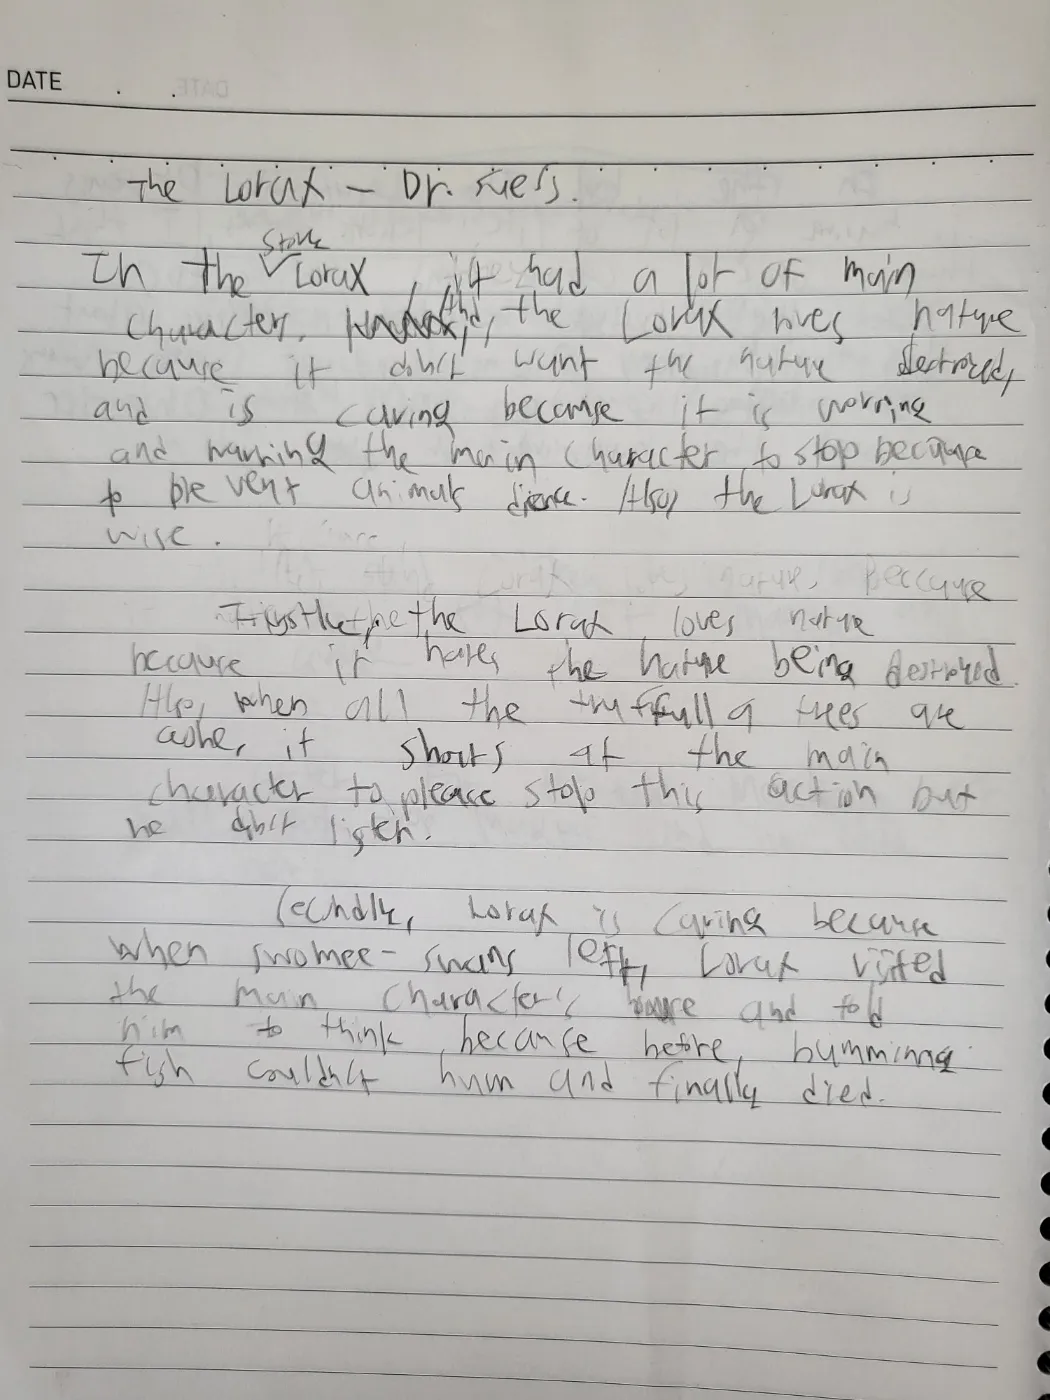 DATE . .
The Lorax – Dr. suess.
story
In the Lorax, it had a lot of main
character. And, the Lorax loves nature
because it didn't want the nature destroyed,
and is caring because it is
and warning the main character to stop because
to prevent animals. Also, the Lorax is
wise.
because
Firstly, the Lorax loves nature
because it hates the nature being destroyed.
Also, when all the truffulla trees are
it shouts at the main
character to please stop this action but
he didn't listen.
Lorax is caring because
when swomee-swans left, Lorax visited
the main character's house and told
him to think because before, humming
fish couldn't hum and finally died.